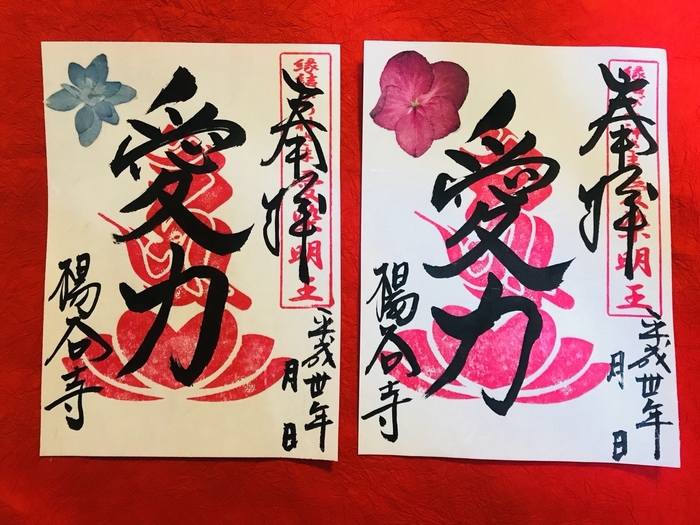 奉拝
縁結
愛染明王
愛力
平成卅年
月 日
楊谷寺
奉拝
明王
愛力
平成卅年
月 日
楊谷寺